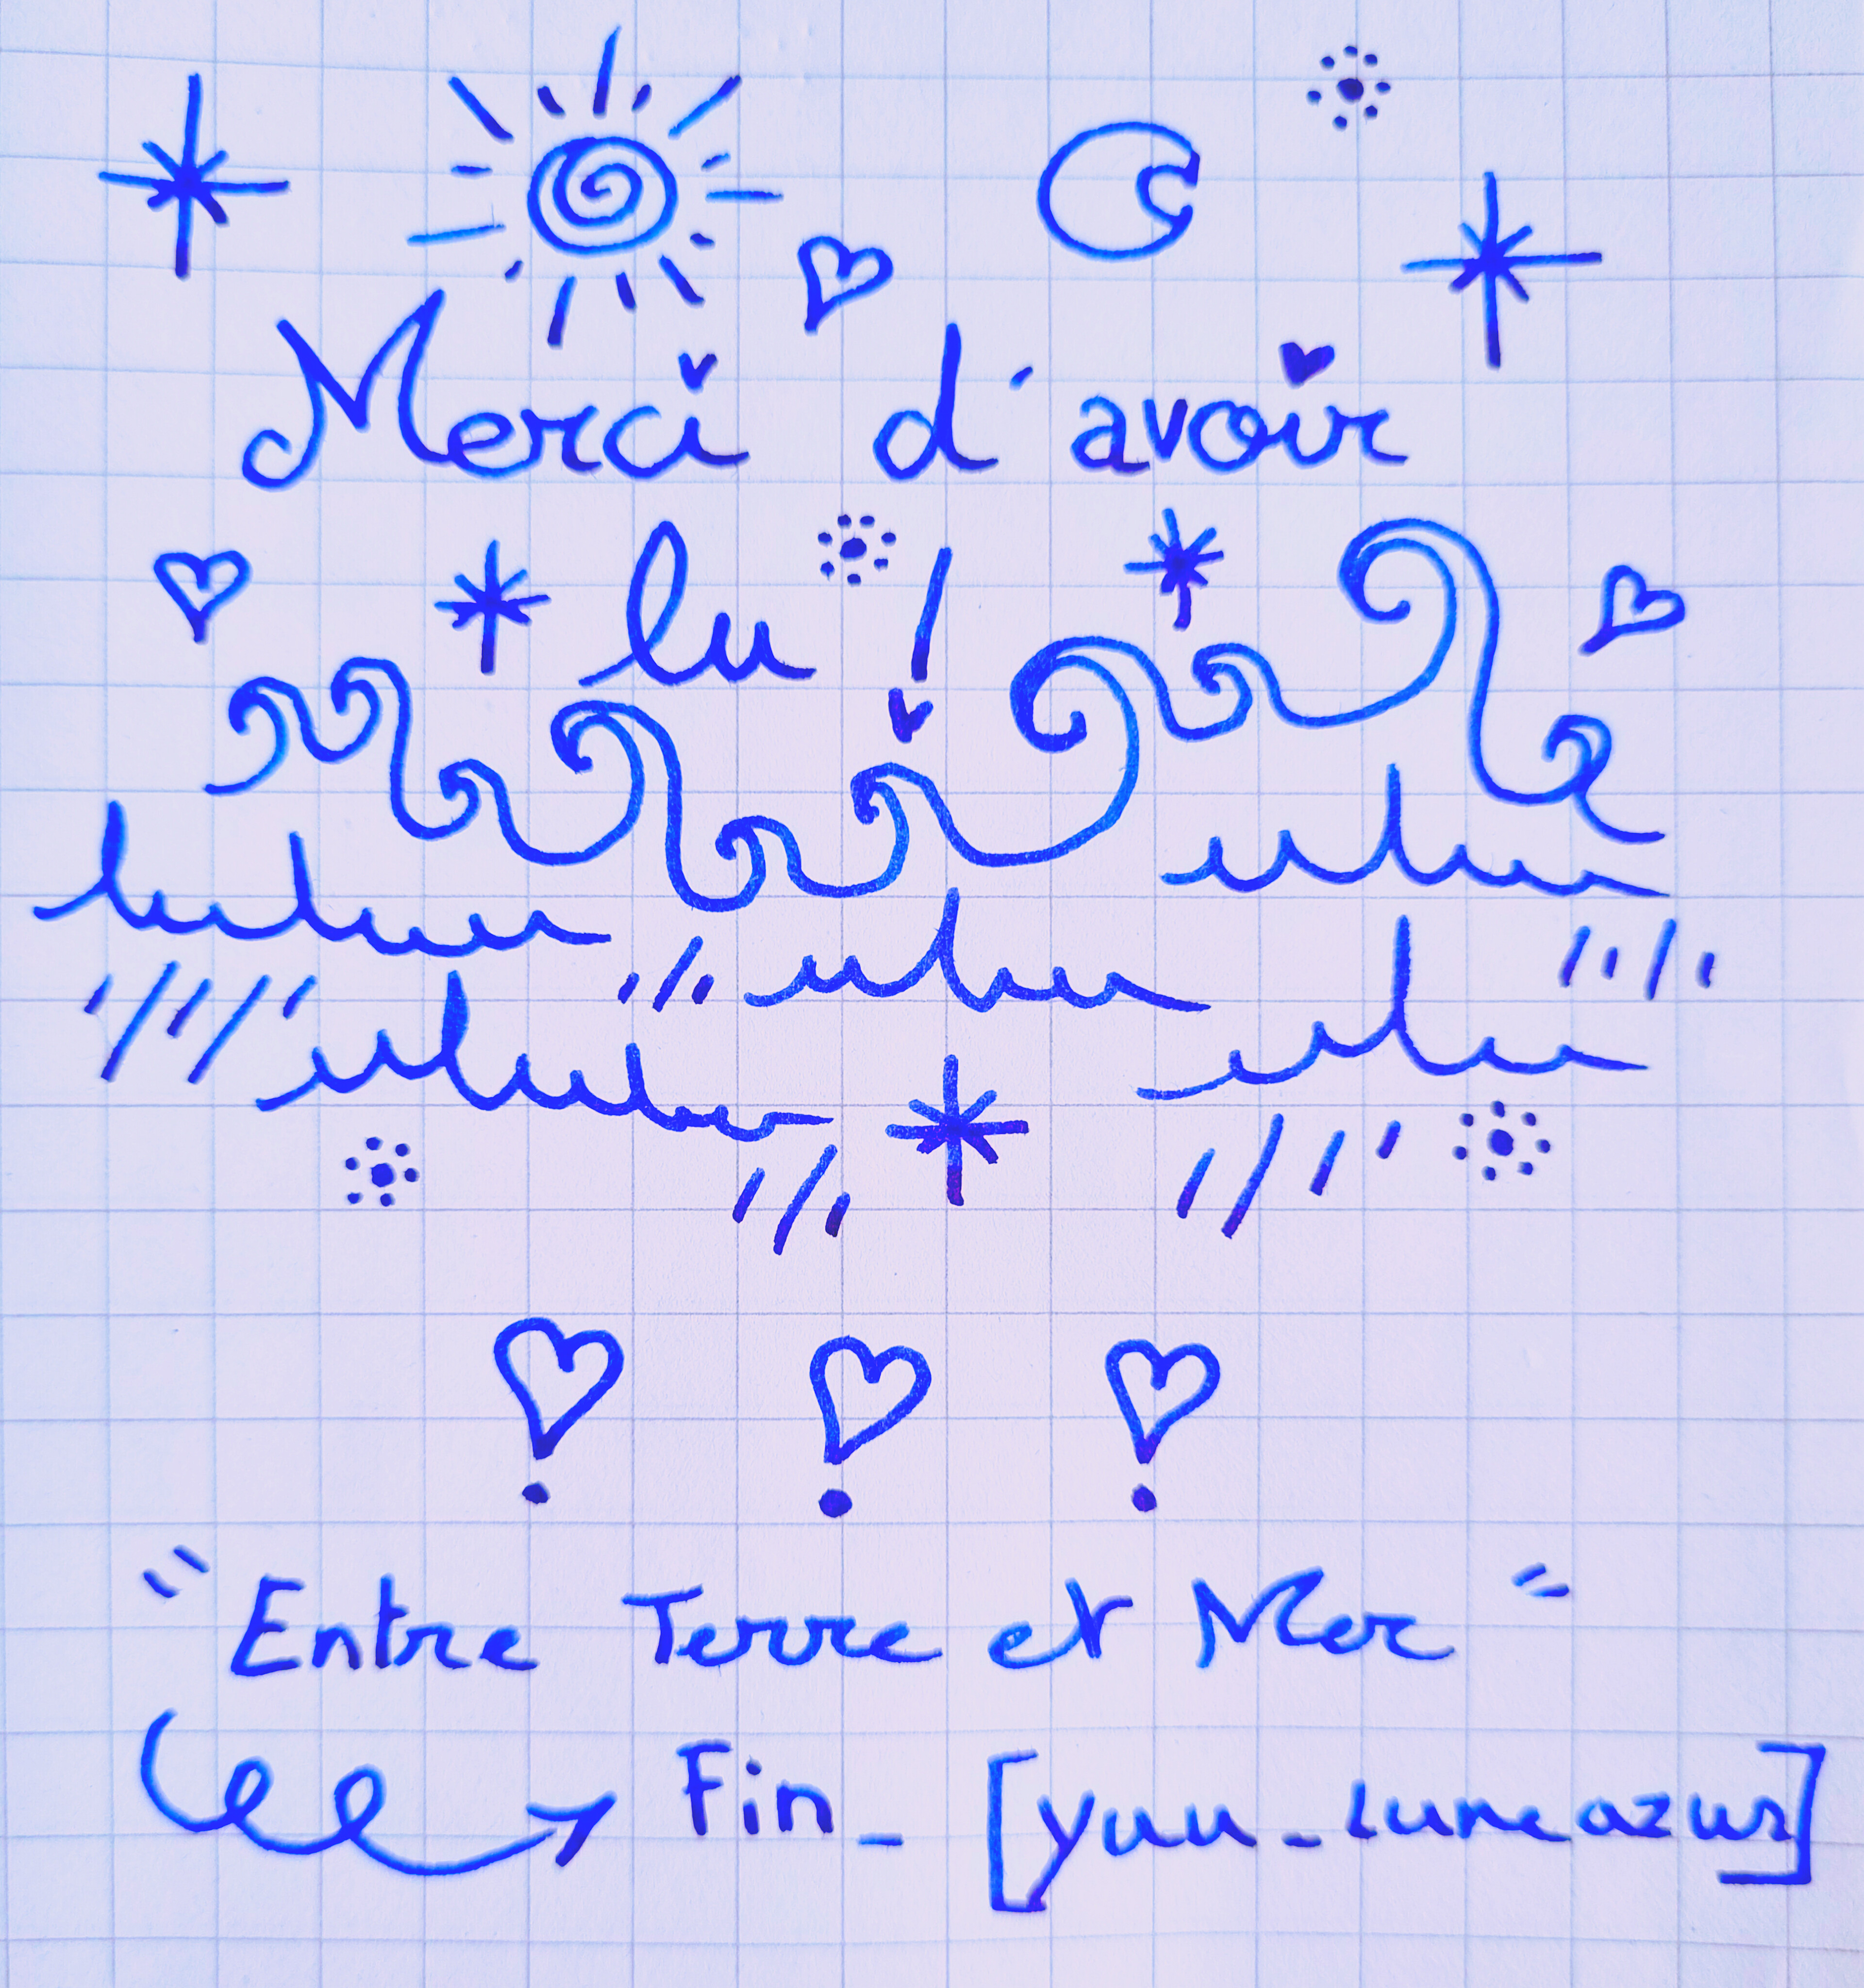 Merci d'avoir
lu !
"Entre Terre et Mer"
Fin_ [yuu_luneazur]